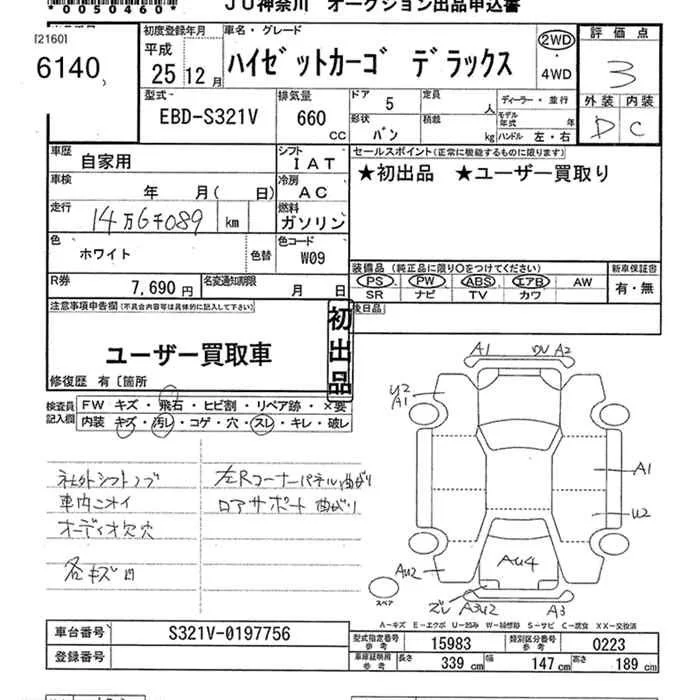 *0050460*
JU神奈川 オークション出品申込書
[2160]
6140
初度登録年月
平成
25 12月
車名・グレード
ハイゼットカーゴ デラックス
2WD
・
4WD
評価点
3
外装 内装
D C
型式
EBD-S321V
排気量
660
CC
ドア
5
形状
バン
定員
人
積載
kg
ディーラー・並行
モデル年式 年
ハンドル 左・右
車歴
自家用
車検
年 月( 日)
走行
14万6千089 km
シフト
IAT
冷房
AC
燃料
ガソリン
色
ホワイト
色替
色コード
W09
R券
7,690円
名変通知期限
月 日
セールスポイント(正常に機能するものに限ります)
★初出品 ★ユーザー買取り
装備品(純正品に限り○をつけてください)
PS・PW・ABS・エアB・AW
SR・ナビ・TV・カワ
新車保証書
有・無
後日品
注意事項申告欄(不具合内容等は具体的に記入して下さい)
ユーザー買取車
初出品
修復歴 有〔箇所
検査員
記入欄
FW キズ・飛石・ヒビ割・リペア跡・×要
内装・キズ・汚レ・コゲ・穴・スレ・キレ・破レ
社外シフトノブ
車内ニオイ
オーディオ欠穴
各キズ凹
左Rコーナーパネル曲がり
ロアサポート曲がり
A1 A2
U2
A1
A1
U2
AU4
AU2
ズレ A3U2 A3
スペア
A−キズ E−エクボ U−凹み W−補修跡 S−サビ C−腐食 XX−交換済
車台番号
S321V-0197756
登録番号
型式指定番号
参考
15983
類別区分番号
参考
0223
車庫証明用
参考
長さ 339 cm 幅 147 cm 高さ 189 cm